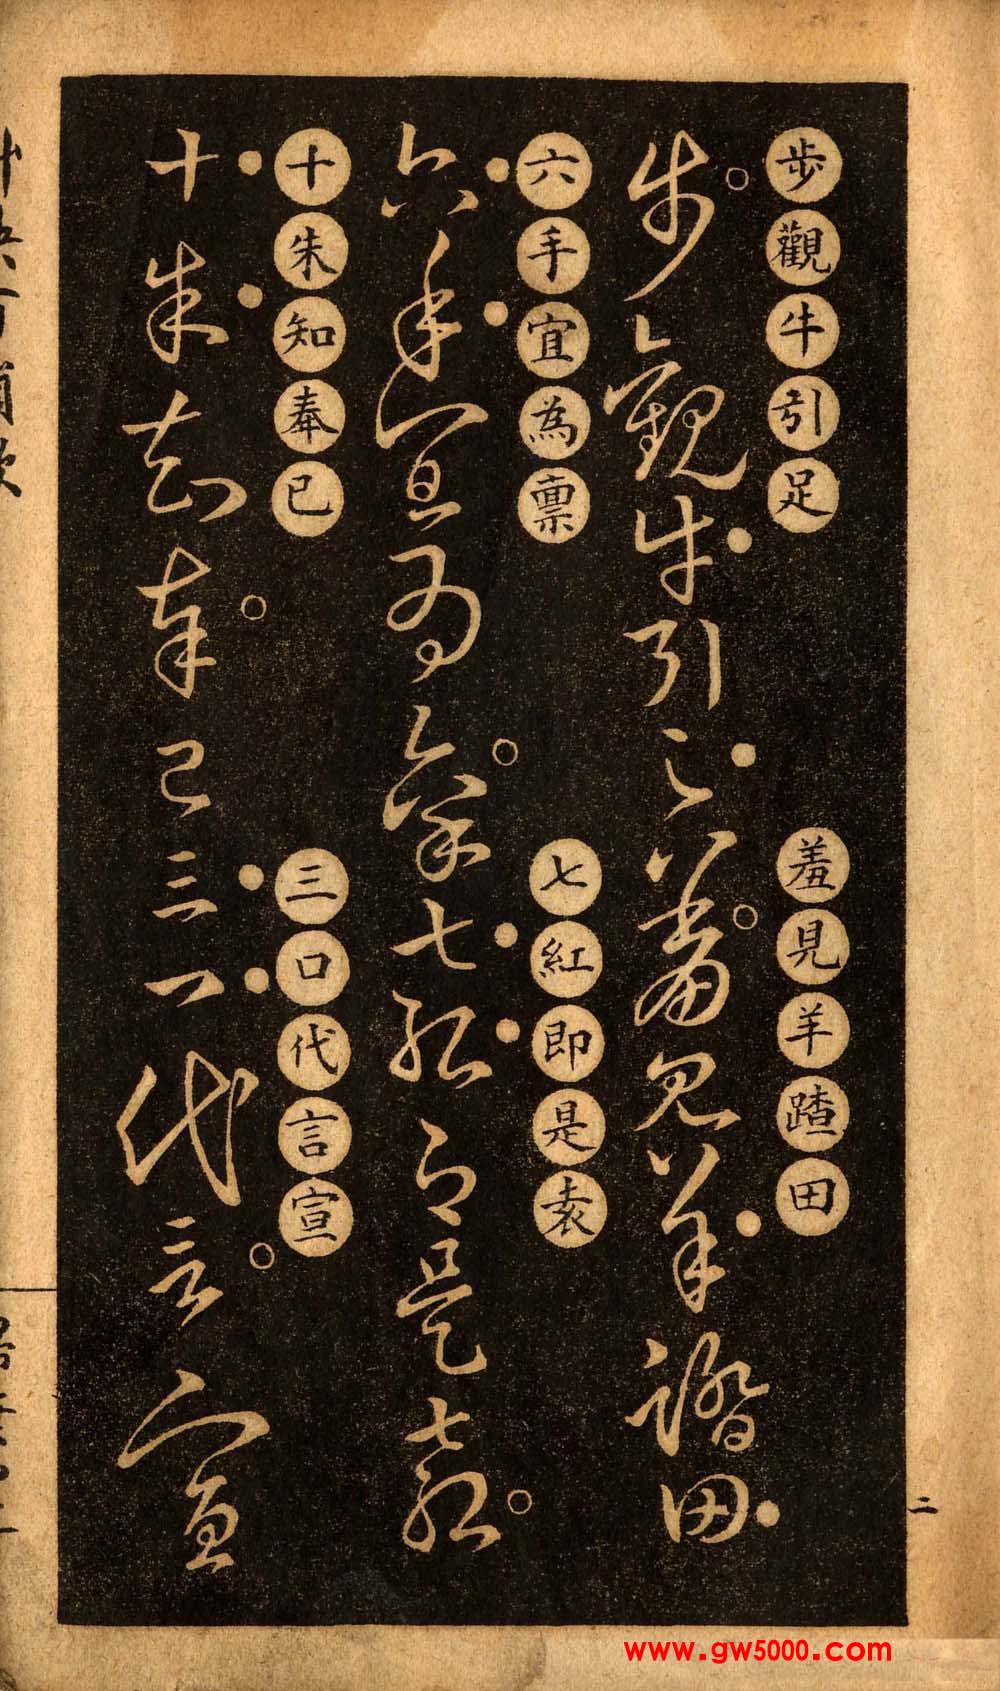 二
歩觀牛引足
羞見羊蹅田
步觀牛引足羞見羊蹅田
六手宜為禀
七紅即是袁
六手宜為禀七紅即是袁
十朱知奉已
三口代言宣
十朱知奉已三口代言宣
www.gw5000.com